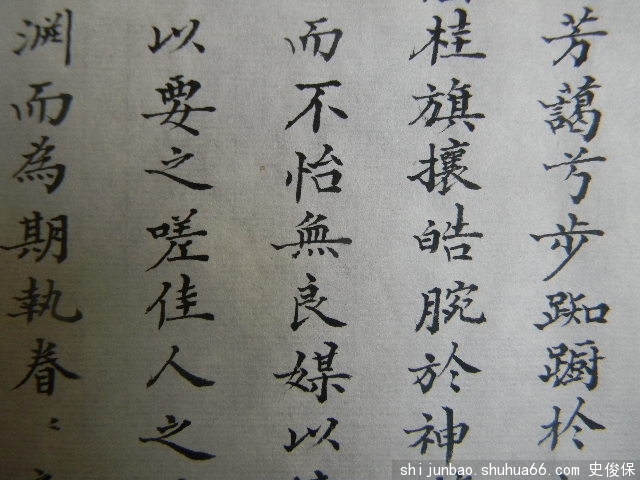 芳藹兮步踟躕於
桂旗攘皓腕於神
而不怡無良媒以
以要之嗟佳人之
渊而為期執眷〻
shijunbao.shuhua66.com 史俊保